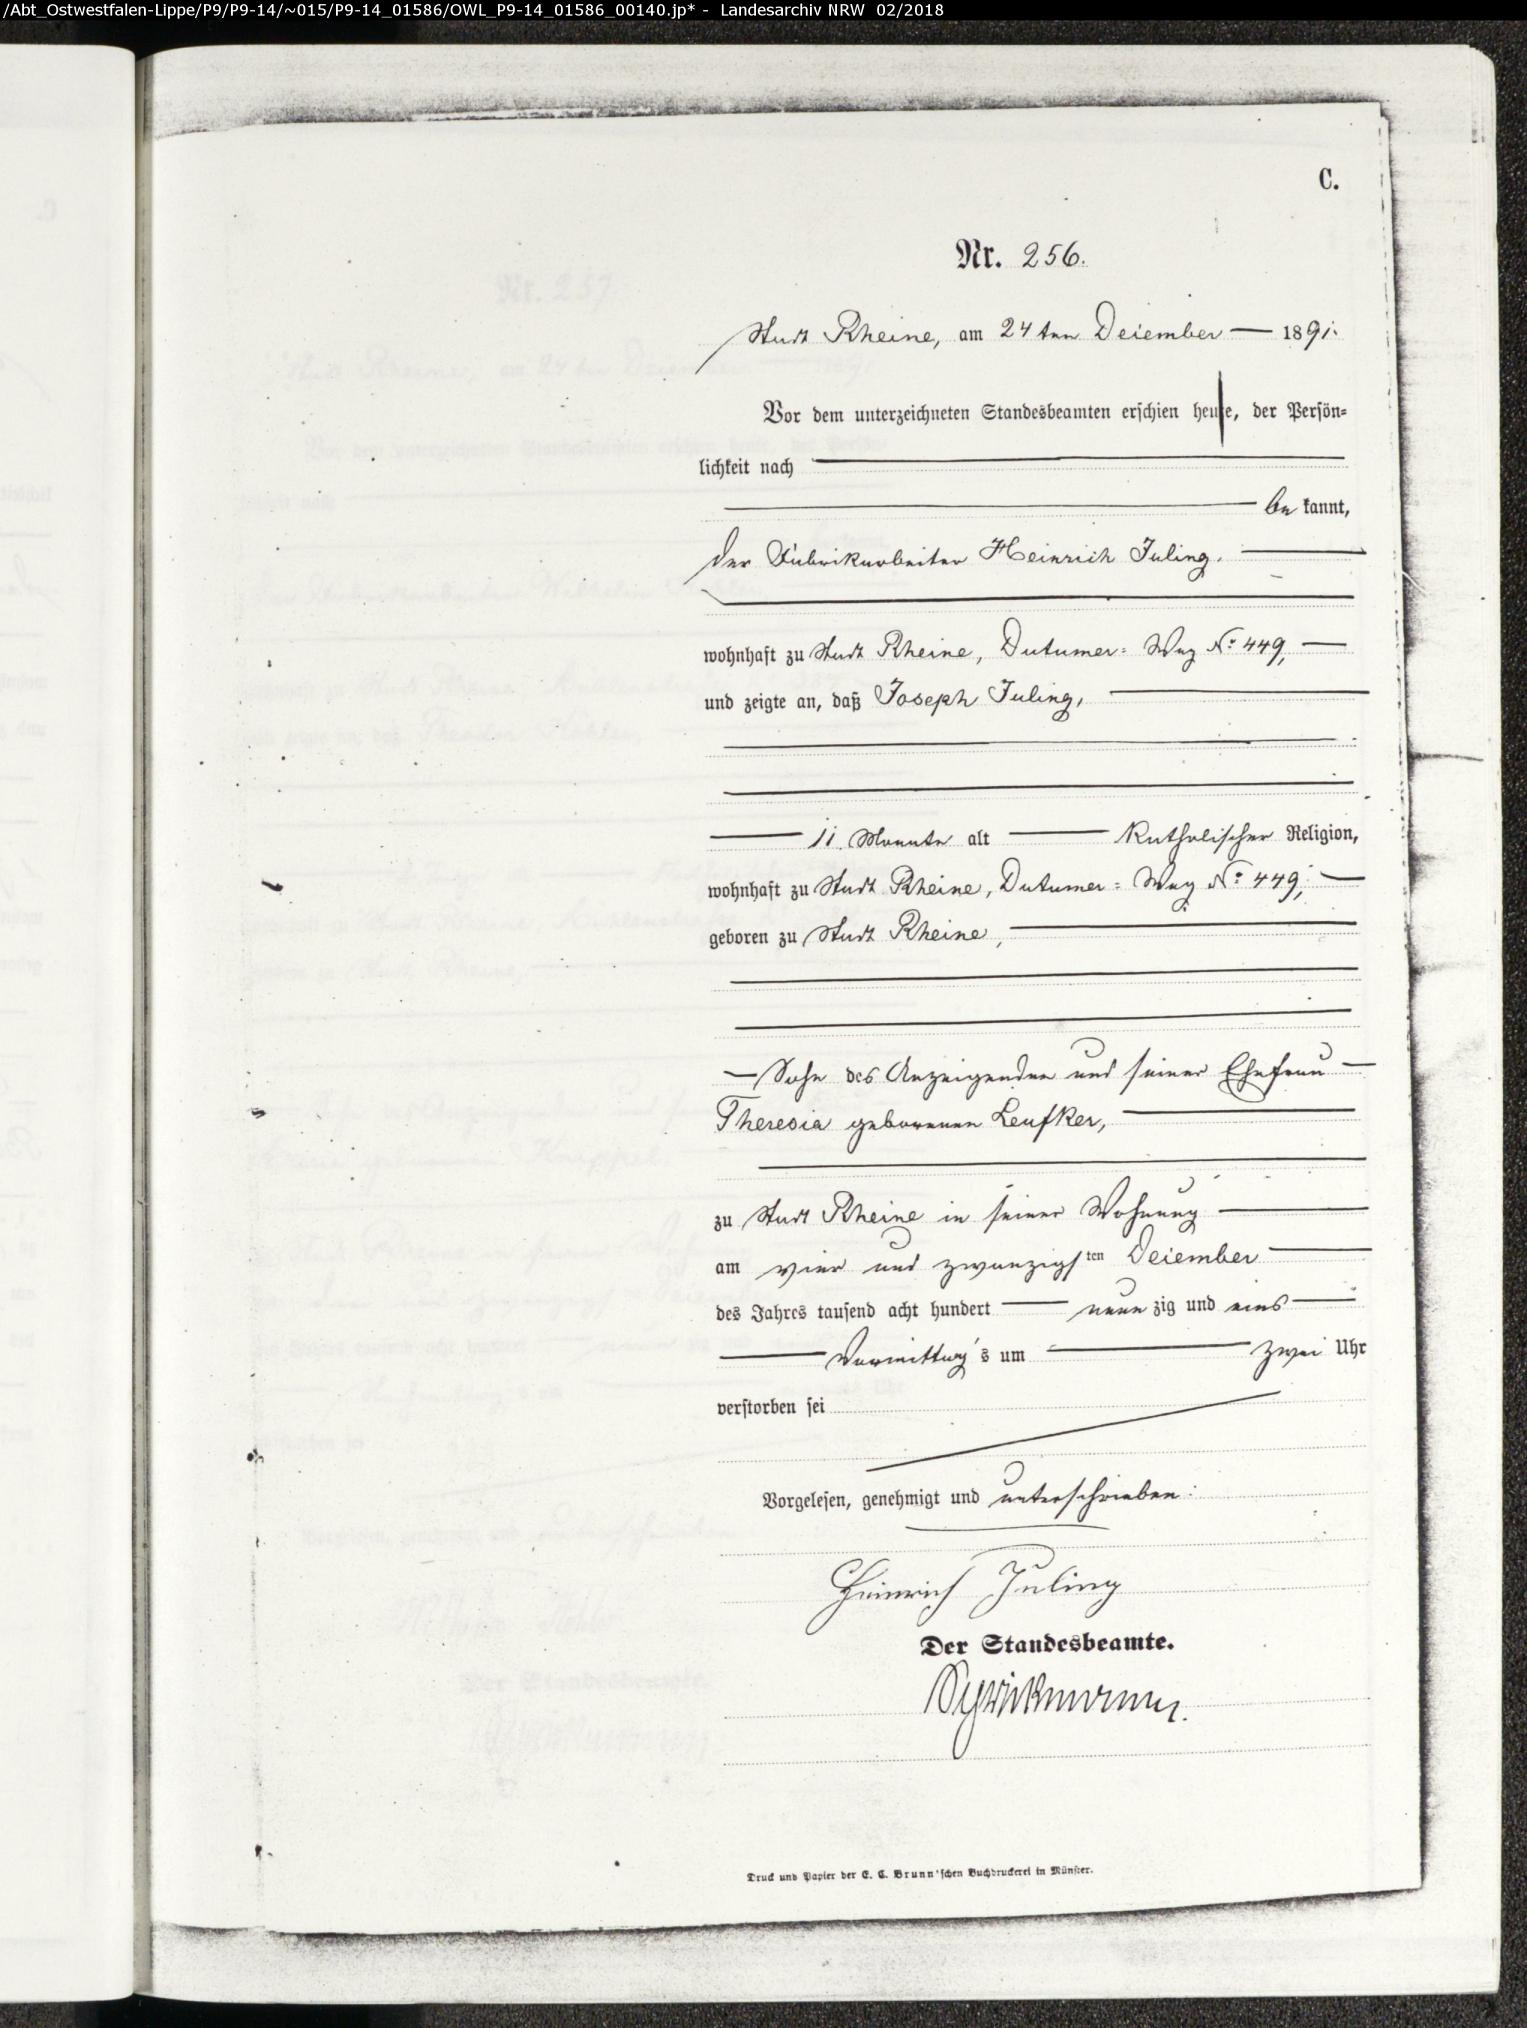 /Abt_Ostwestfalen-Lippe/P9/P9-14/~015/P9-14_01586/OWL_P9-14_01586_00140.jp* - Landesarchiv NRW 02/2018
C.
Nr. 256.
Stadt Rheine, am 24 ten Dezember 1891.
Vor dem unterzeichneten Standesbeamten erschien heute, der Persön-
lichkeit nach
be kannt,
der Fabrikarbeiter Heinrich Juling.
wohnhaft zu Stadt Rheine, Dutumer- Weg No 449,
und zeigte an, daß Joseph Juling,
11 Monate alt katholischer Religion,
wohnhaft zu Stadt Rheine, Dutumer- Weg No 449,
geboren zu Stadt Rheine,
Sohn des Anzeigenden und seiner Ehefrau
Theresia geborenen Leufker,
zu Stadt Rheine in seiner Wohnung
am vier und zwanzigsten Dezember
des Jahres tausend acht hundert neun zig und eins
Vormittags um zwei Uhr
verstorben sei
Vorgelesen, genehmigt und unterschrieben:
Heinrich Juling
Der Standesbeamte.
Druck und Papier der E. C. Brunn'schen Buchdruckerei in Münster.